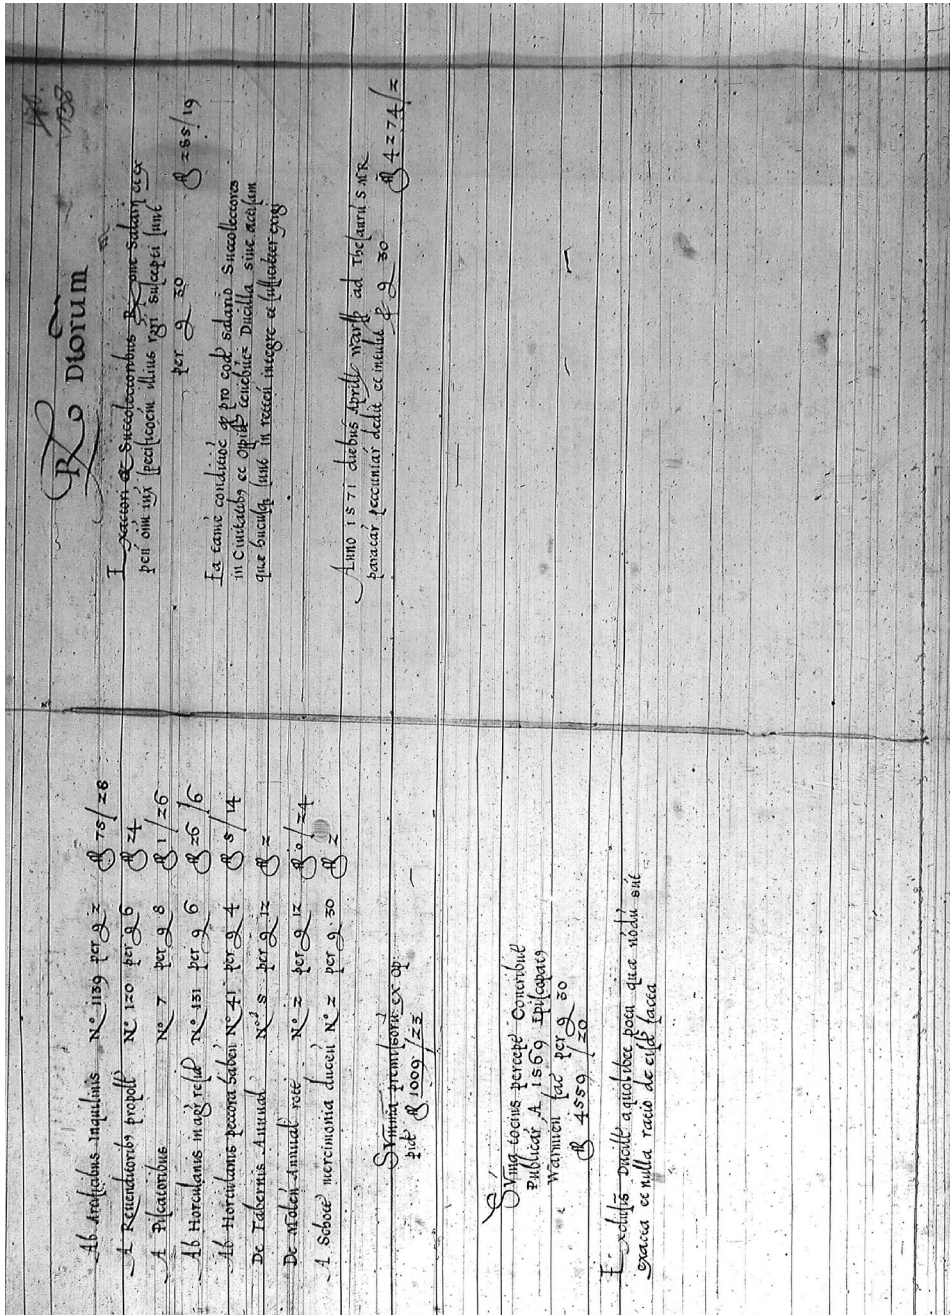 Ab Artificibus Inquilinis N° 1139 per g 2 fl 75/28
A Revenditoribus propoll N° 120 per g 6 fl 24
A Piscatoribus N° 7 per g 8 fl 1/26
Ab Hortulanis in agr resid N° 131 per g 6 fl 26/6
Ab Hortulanis peccora haben N° 41 per g 4 fl 5/14
De Tabernis Annual N° 5 per g 12 fl 2
De Molen Annual rote N° 2 per g 12 fl 0/24
A Schote mercimonia ducen N° 2 per g 30 fl 2
Summa premissoru ex Op:
pid fl 1009/23
Suma totius percepte Contribut
Publicar A 1569 Episcopatus
Warmien fac per g 30
fl 4559/20
Exclusis Ducill a quolibet pocu quæ nōdū sūt
exacta et nulla ratio de eisd facta
138
Ro Dtorum
Exactori & Succollectoribus Rone Salarii
peri oim iux specificcoem illius rgri suscepti sunt
per g 30 fl 255/19
Ea tamē conditiōe qp pro eod salario Succollectores
in Civitatibus et Opidis tenebūt Ducilla sive accisam
quæ hucusq sunt in reten integre et sufficiēter exigē
Anno 1571 diebus Aprill Wars ad Thesaurū S MR
paratar pecuniar dedit et intulit f g 30 fl 4274/2